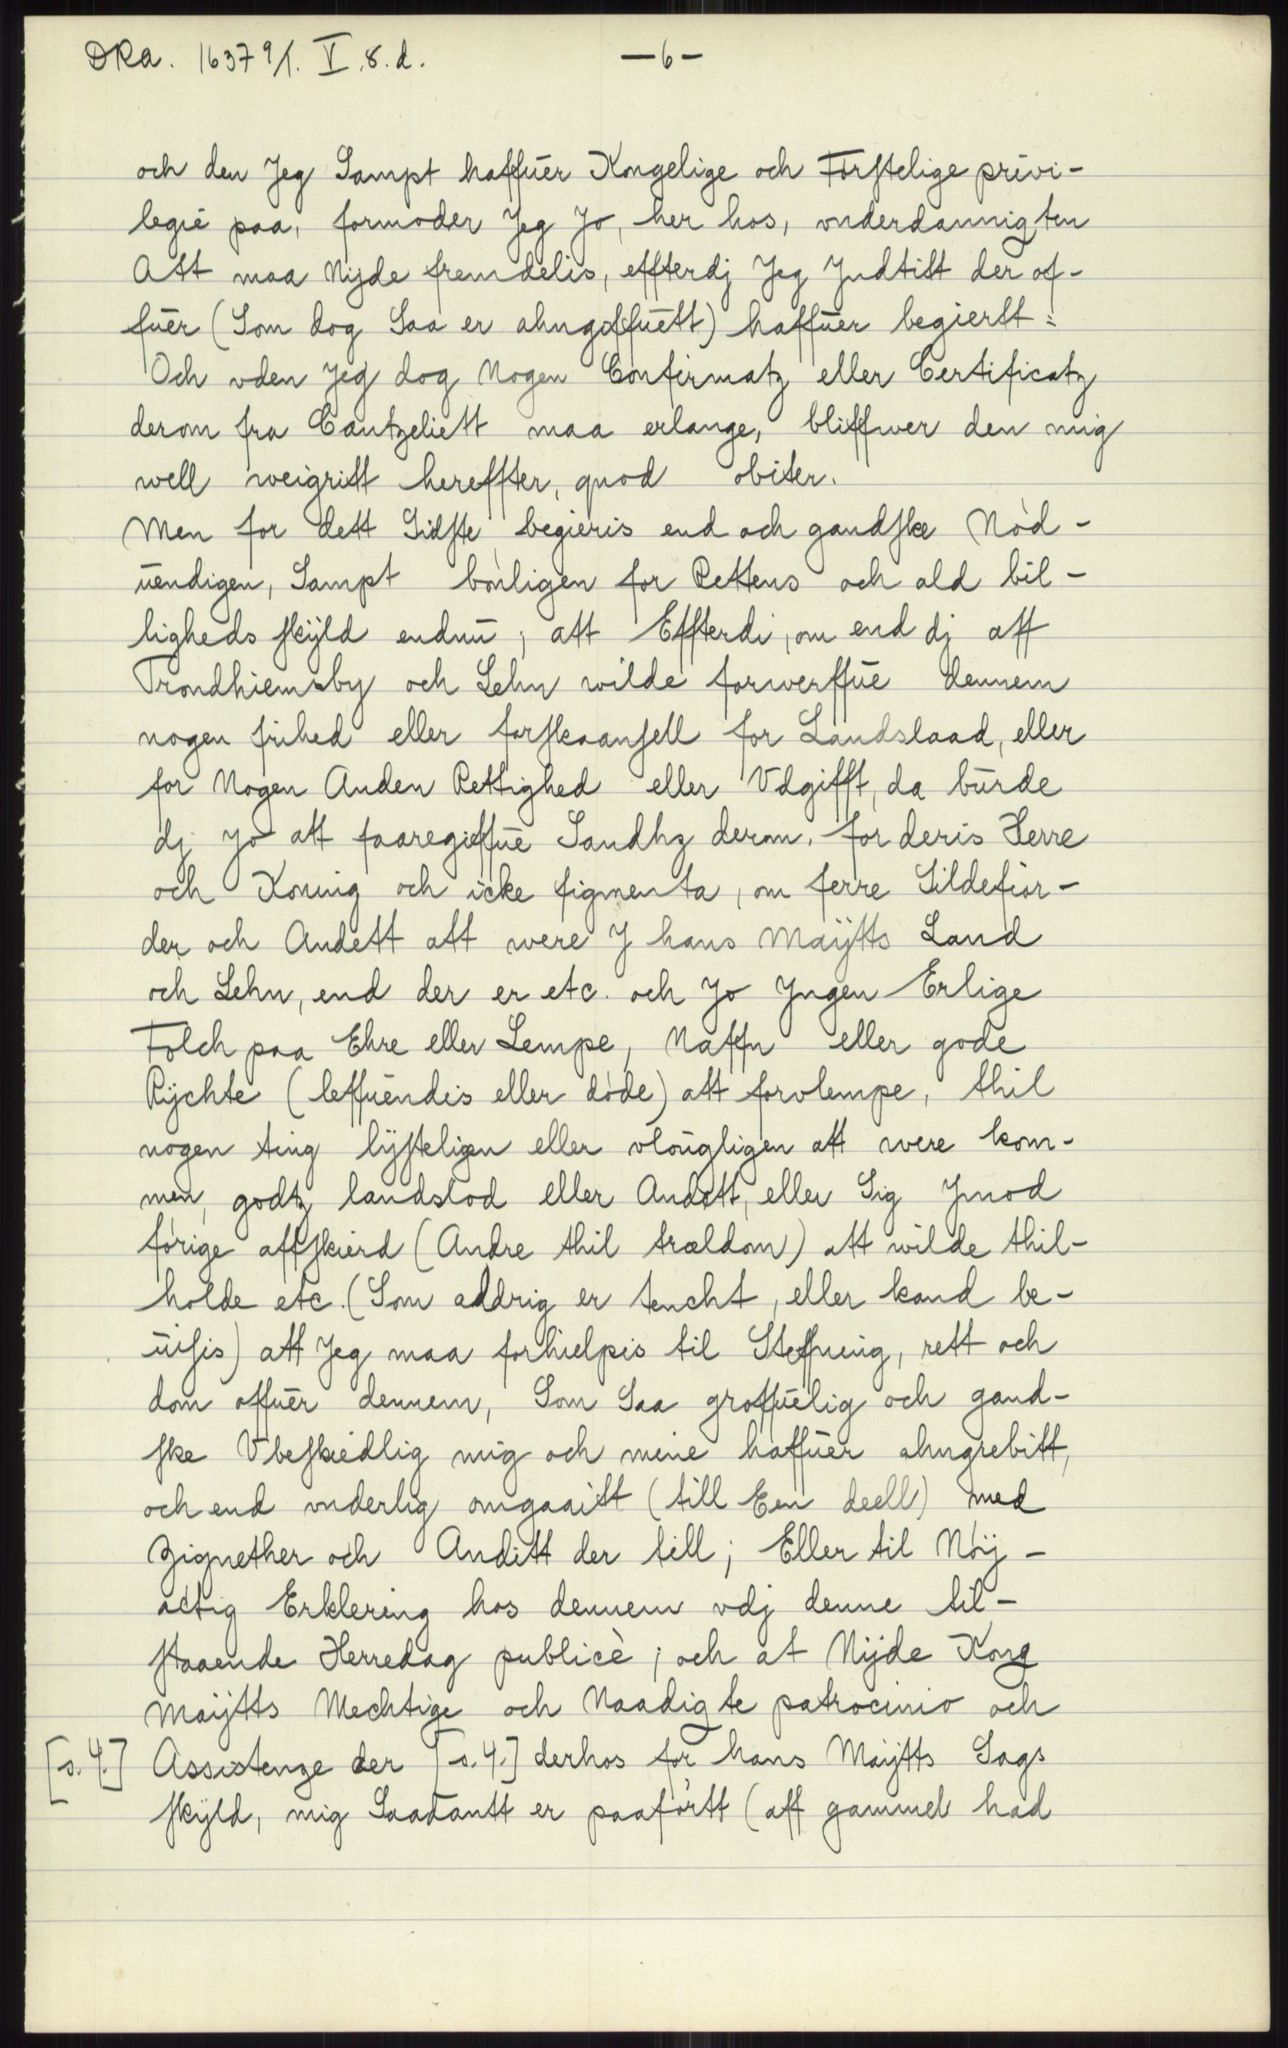 DRa. 1637 9/1. V. 8. d. —6—
och den Jeg Sampt haffuer Kongelige och Förstelige privi-
legie paa, formoder Jeg Jo, her hos, vnderdannigsten
Att maa Nijde fremdelis, effterdj Jeg Jndtitt der of-
fuer (Som dog Saa er ahngiffuett) haffuer begierst:
Och vden Jeg dog Nogen Confirmatz eller Certificatz
derom fra Cantzeliett maa erlange, bliffwer den mig
well weigritt hereffter, quod obiter.
Men for dett Sidste, begieris end och gandske Nöd-
uendigen, Sampt bönligen for Rettens och ald bil-
ligheds skÿld endnu, att Effterdi, om end dj aff
Trondhiemsby och Lehn wilde forwerffue dennem
nogen frihed eller forskaansell for Landslaad, eller
for Nogen Anden Rettighed eller Vdgifft, da burde
dj Jo att faaregieffue Sandhz derom. for deris Herre
och Koning och icke figmenta, om ferre Sildefior-
der och Andett att were J hans Maÿtts Land
och Lehn, end der er etc. och Jo Jngen Erlige
Folch paa Ehre eller Lempe, Naffn eller gode
Rÿchte (leffuendis eller döde) att forvlempe, thil
nogen ting lÿsteligen eller vlougligen att were kom-
men, godtz landslod eller Andett, eller Sig Jmod
förige affskierd (Andre thil trældom) att wilde thil-
holde etc. (Som aldrig er tencht, eller kand be-
uisis) att Jeg maa forhielpis til Steffning, rett och
dom offuer dennem, Som Saa groffuelig och gand-
ske Vbeskiedlig mig och mine haffuer ahngrebitt,
och end vnderlig omgaaitt (till Een deell) med
Zignether och Anditt der till; Eller til Nöÿ-
actig Erklering hos dennem vdj denne til-
staaende Herredag publicè; och at Nijde Kong
Maÿtts Mechtige och Naadigste patrocinio och
[s. 4.] Assistenze der [s. 4.] derhos for hans Maÿtts Sags
skÿld, mig Saadantt er paaförtt (aff gammel had